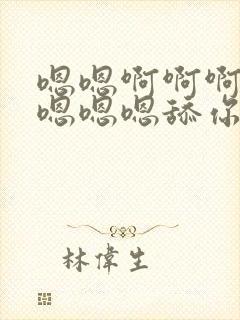 嗯嗯啊啊啊
嗯嗯嗯舔你
林偉生